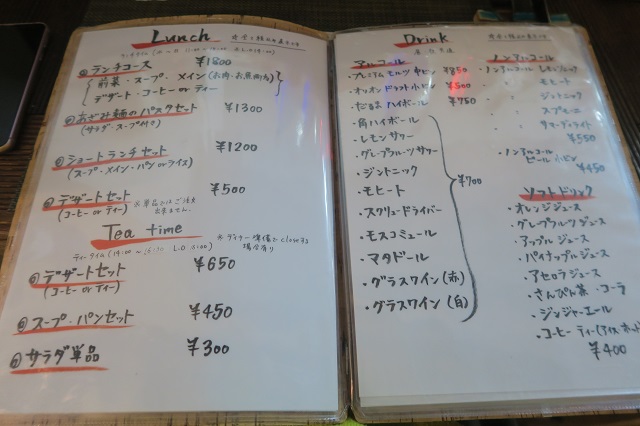 Lunch
◎ランチコース ¥1800
前菜・スープ・メイン(お肉・お魚
デザート・コーヒー or ティー
パスタセット ¥1300
(サラダ・スープ付
◎ショートランチセット ¥1200
(スープ・メイン・パン or ライス)
◎デザートセット ¥500
(コーヒー or ティー) ※単品ではご注文
出来ません。
Tea time
◎デザートセット ¥650
(コーヒー or ティー)
◎スープ・パンセット ¥450
◎サラダ単品 ¥300
Drink
アルコール
・プレミアムモルツ 中ビン ¥850
・オリオン ドラフト 小ビン ¥500
・だるま ハイボール ¥750
・角ハイボール
・レモンサワー
・グレープフルーツサワー
・ジントニック
・モヒート ¥700
・スクリュードライバー
・モスコミュール
・マタドール
・グラスワイン(赤)
・グラスワイン(白)
ノンアルコール
・ノンアルコール レモンジトニック
〃 モヒート
〃 ジントニック
〃
〃
¥550
・ノンアルコール
ビール 小ビン
¥450
ソフトドリンク
・オレンジジュース
・グレープフルーツジュース
・アップルジュース
・パイナップルジュース
・アセロラジュース
・さんぴん茶・コーラ
・ジンジャーエール
・コーヒー ティー(アイス ホット)
¥400